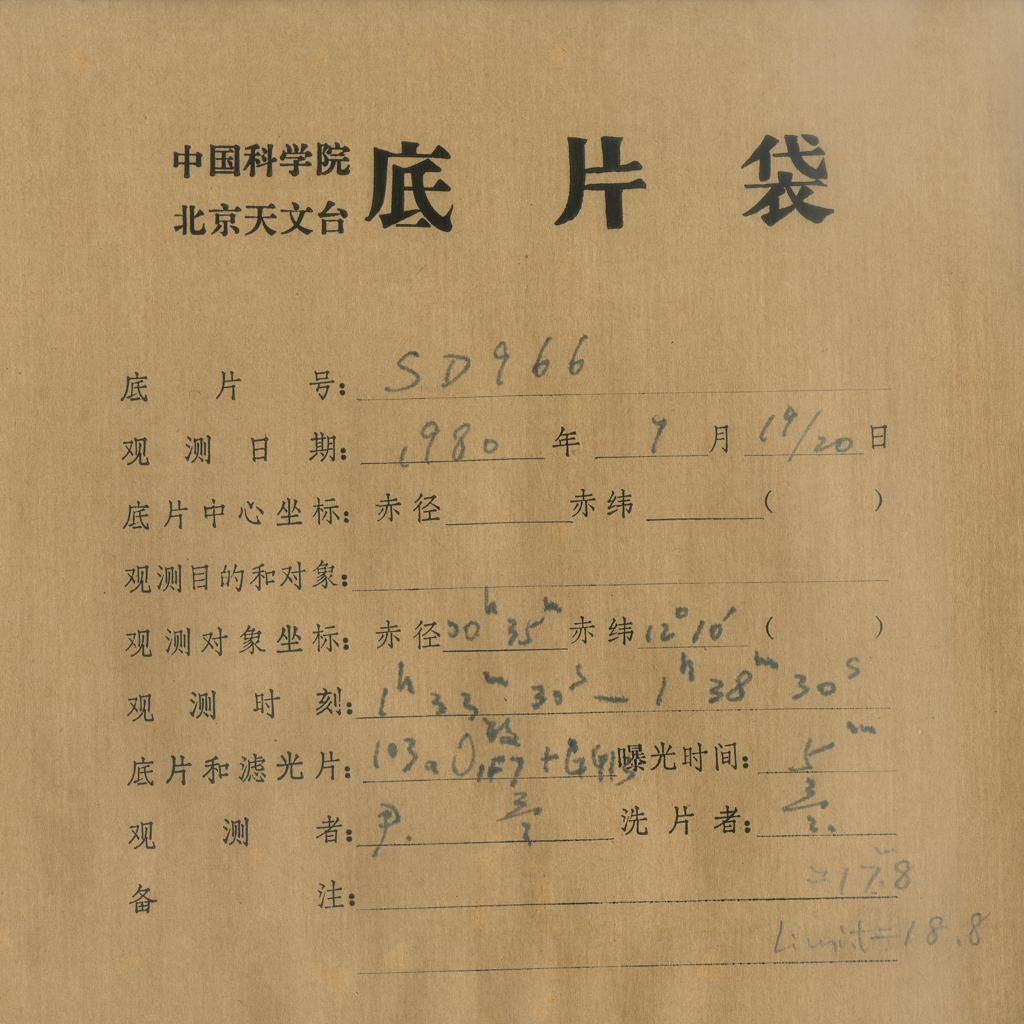 中国科学院
北京天文台
底片袋
底片号: SD966
观测日期: 1980年 9月 19/20日
底片中心坐标: 赤径 赤纬 ( )
观测目的和对象:
观测对象坐标: 赤径 00h 35m 赤纬 12° 10′ ( )
观测时刻: 1h 33m 30s — 1h 38m 30s
底片和滤光片: 103aO 敏 1F7 + GG13 曝光时间: 5m
观测者: 尹. 洗片者:
备注: 17.8
Limit = 18.8